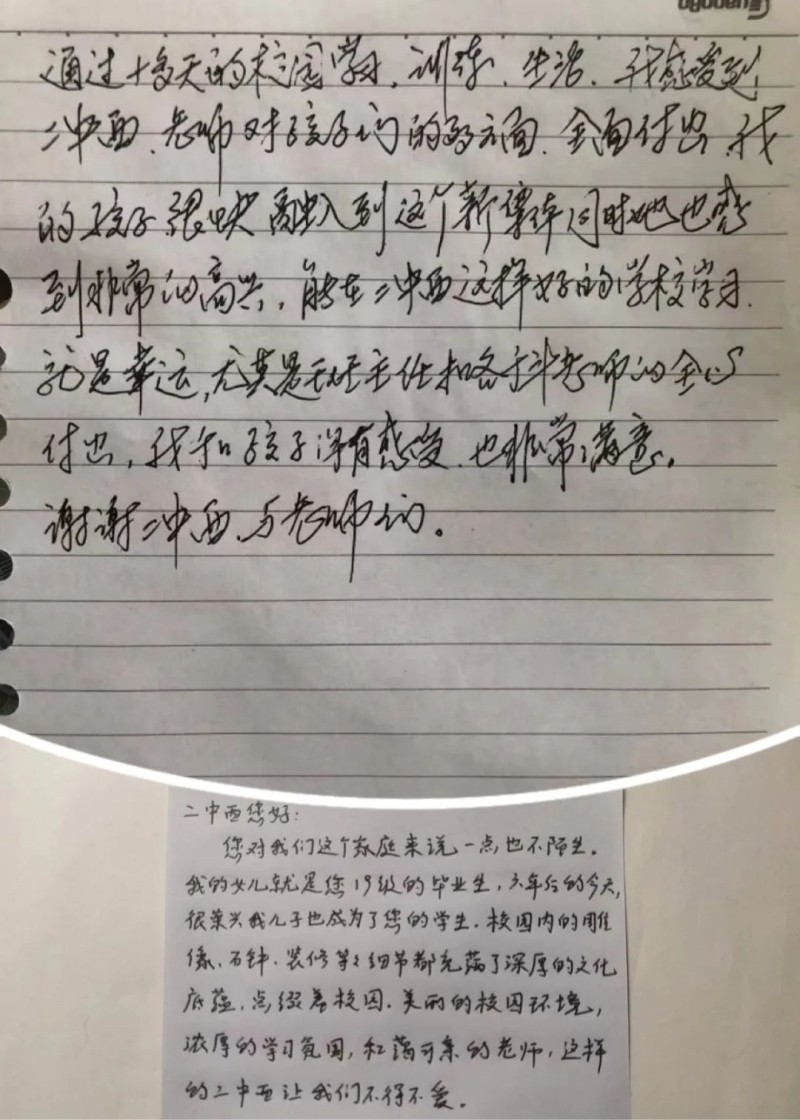 通过十多天的校园学习、训练、生活、我感受到
二中西、老师对孩子们的多方面、全面付出、我
的孩子很快融入到这个新集体同时她也感
到非常的高兴，能在二中西这样好的学校学习、
就是幸运，尤其是班主任和各科老师的全心
付出，我和孩子深有感受、也非常满意。
谢谢二中西、与老师们。
二中西您好：
您对我们这个家庭来说一点也不陌生。
我的女儿就是您19级的毕业生，六年后的今天，
很荣兴我儿子也成为了您的学生.校园内的雕
像、石钟、装修等等细节都充满了深厚的文化
底蕴，点缀着校园.美丽的校园环境，
浓厚的学习氛围，和蔼可亲的老师，这样
的二中西让我们不得不爱。